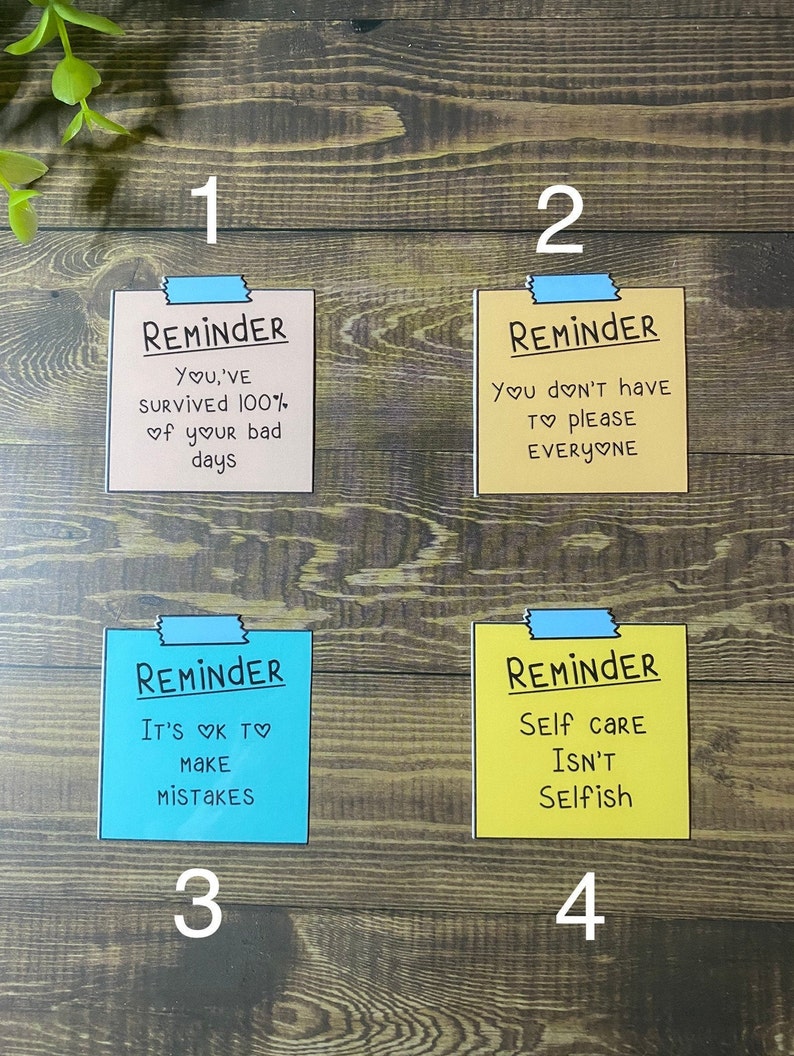 1
2
REMINDER
YOU,'VE
SURVIVED 100%
Of yOUR bad
days
REMINDER
yOU dON'T haVE
TO plEasE
EVERyONE
REMINDER
IT'S OK TO
MaKE
MISTaKES
REMINDER
SElf CaRE
ISN'T
SElfish
3
4